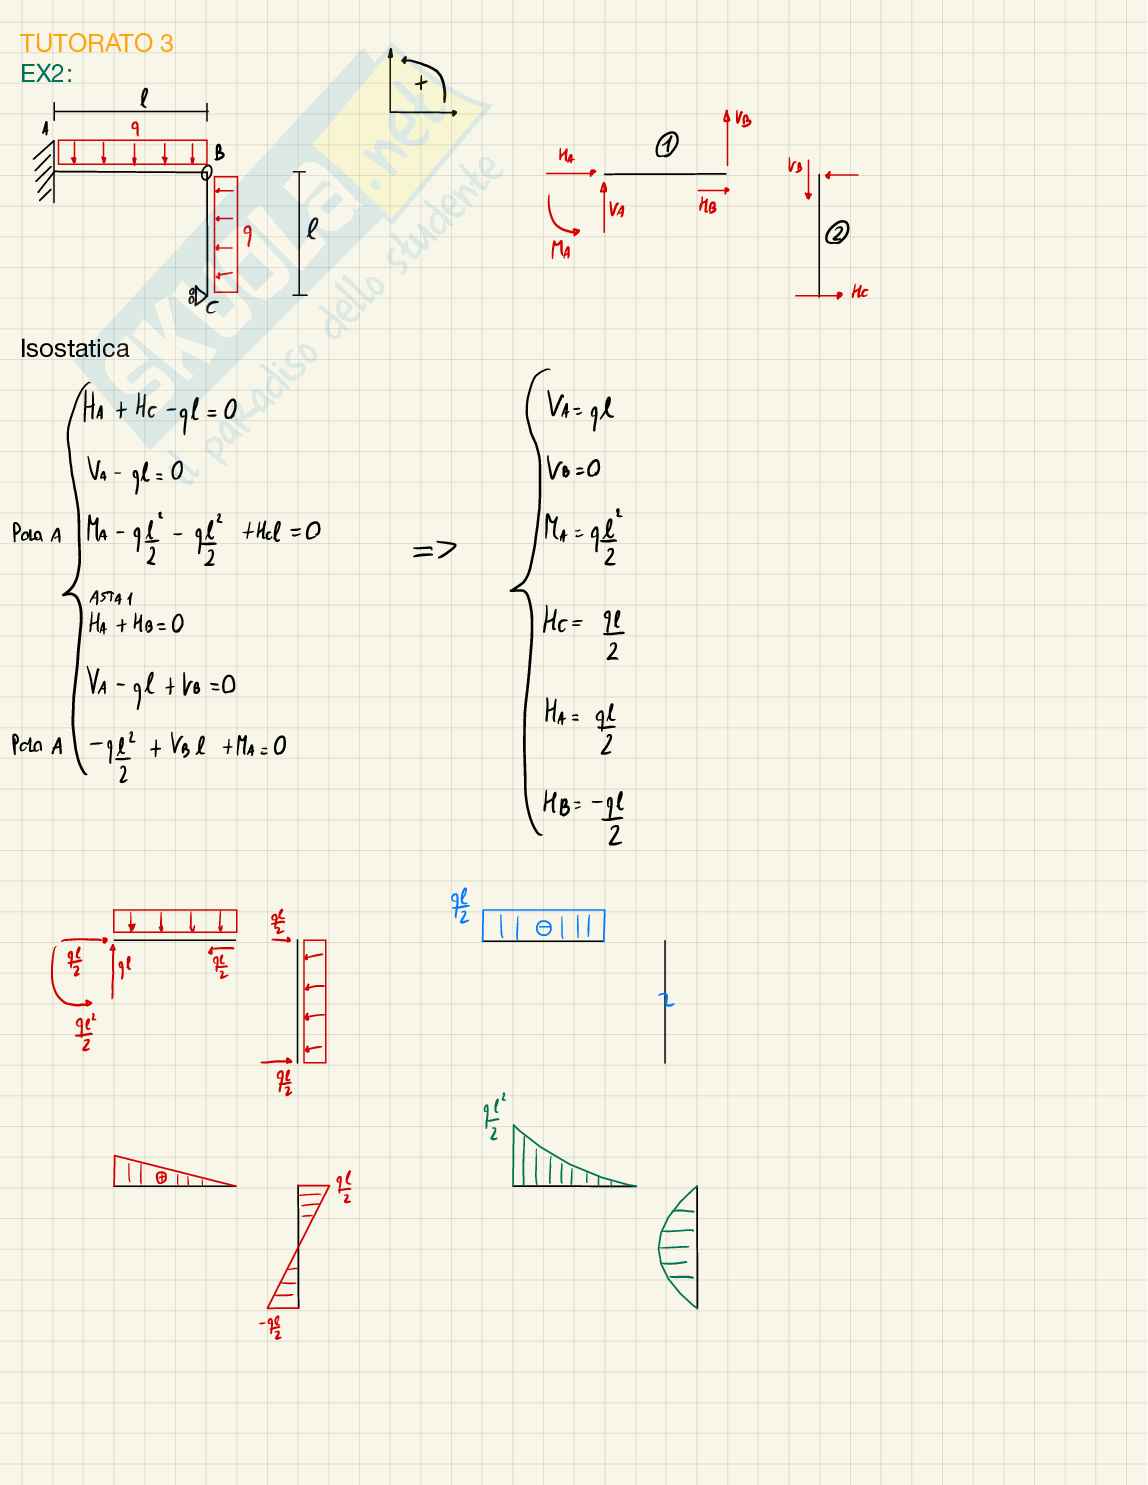 TUTORATO 3
EX2:
l
A
q
B
q
l
C
+
HA
VA
MA
1
VB
HB
VB
2
HC
SKUOLA.net
il paradiso dello studente
Isostatica
HA + HC - ql = 0
VA - ql = 0
Polo A MA - ql²/2 - ql²/2 + HCl = 0
ASTA 1
HA + HB = 0
VA - ql + VB = 0
Polo A -ql²/2 + VB l + MA = 0
=>
VA = ql
VB = 0
MA = ql²/2
HC = ql/2
HA = ql/2
HB = -ql/2
ql/2
ql
ql/2
ql²/2
ql/2
ql/2
ql/2
⊖
⊕
ql/2
-ql/2
ql²/2